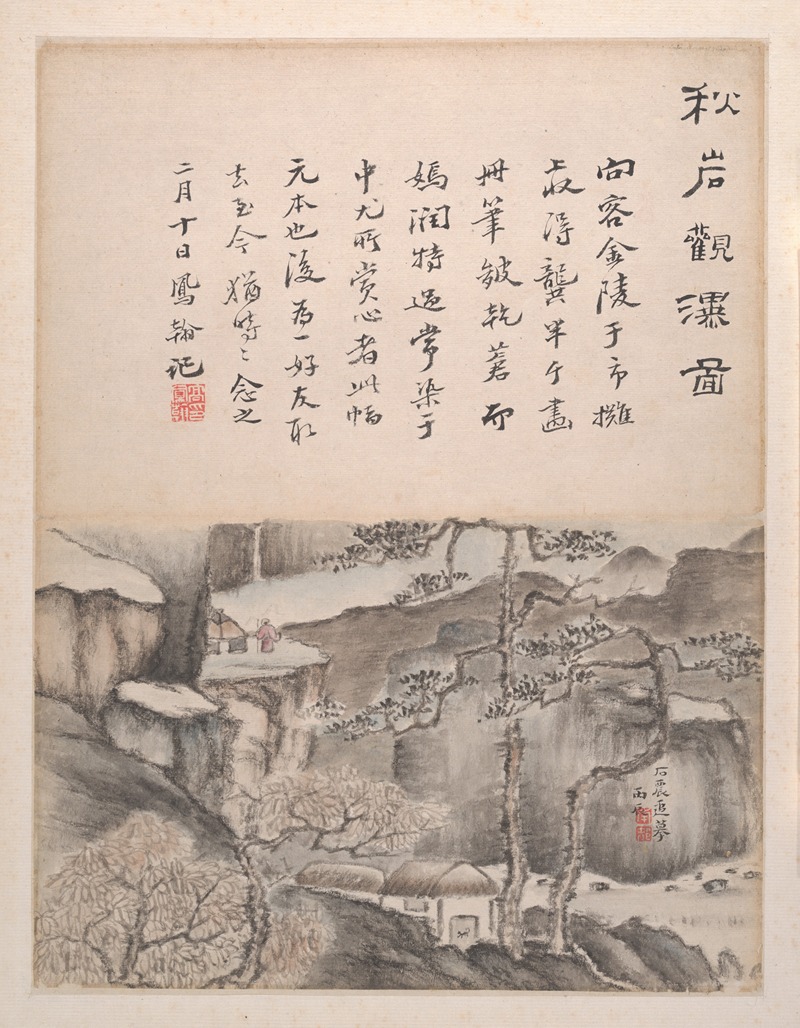 秋岩觀瀑圖
向客金陵于市攤
收得龔半千畫
冊筆皴乾而
嫣潤特過常染于
中尤所賞心者此幅
元本也後為一好友取
去至今猶時〻念之
二月十日鳳翰記
石震追摹
丙辰